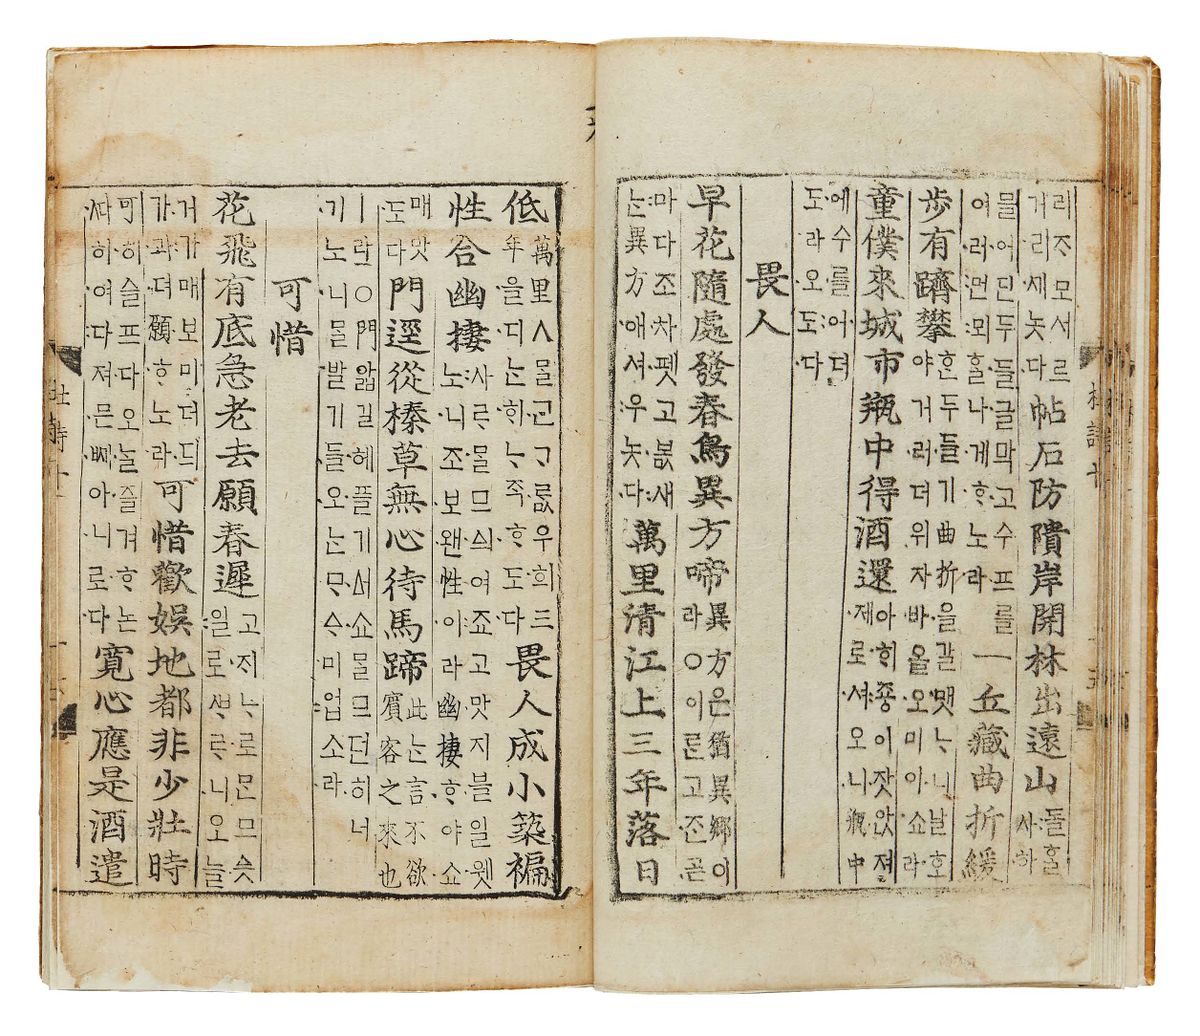 리ᄌᆞ모서르
거리세놋다
帖石防隤岸開林出遠山
돌ᄒᆞᆯ
사하
믈어딘두들글막고수프를
여러먼뫼ᄒᆞᆯ나게ᄒᆞ노라
一丘藏曲折緩
歩有躋攀
ᄒᆞᆫ두들기曲折을갈맷ᄂᆞ니날호
야거러더위자바올오미이쇼라
童僕來城市瓶中得酒還
아ᄒᆡ죵이잣안져
제로셔오니甁中
에수를어뎌
도라오도다
畏人
早花隨處發春鳥異方啼
異方은猶異鄉이
라○이른고ᄌᆞᆫ곧
마다조차펫고봀새
ᄂᆞᆫ異方애셔우놋다
萬里清江上三年落日
低
萬里ㅅᄆᆞᆯᄀᆞᆫᄀᆞᄅᆞᆷ우희三
年을디ᄂᆞᆫᄒᆡᄂᆞ즉ᄒᆞ도다
畏人成小築褊
性合幽棲
사ᄅᆞᄆᆞᆯ므싀여죠고맛지블일웻
노니조보왠性이라幽棲ᄒᆞ야쇼
매맛
도다
門逕從榛草無心待馬蹄
此ᄂᆞᆫ言不欲
賓客之來也
ㅣ란○門앏길헤플기ᅀᅥ쇼ᄆᆞᆯ므던히너
기노니ᄆᆞᆯ발기들오ᄂᆞᆫᄆᆞᅀᆞ미업소라
可惜
花飛有底急老去願春遲
고지ᄂᆞ로ᄆᆞᆫ므슷
일로ᄲᆞᄅᆞ니오ᄂᆞᆯ
거가매보미더듸
가과뎌願ᄒᆞ노라
可惜歡娛地都非少壯時
可히슬프다오ᄂᆞᆯ즐겨ᄒᆞ논
ᄯᅡ히여다져믄ᄢᅦ아니로다
寬心應是酒遣
杜詩十